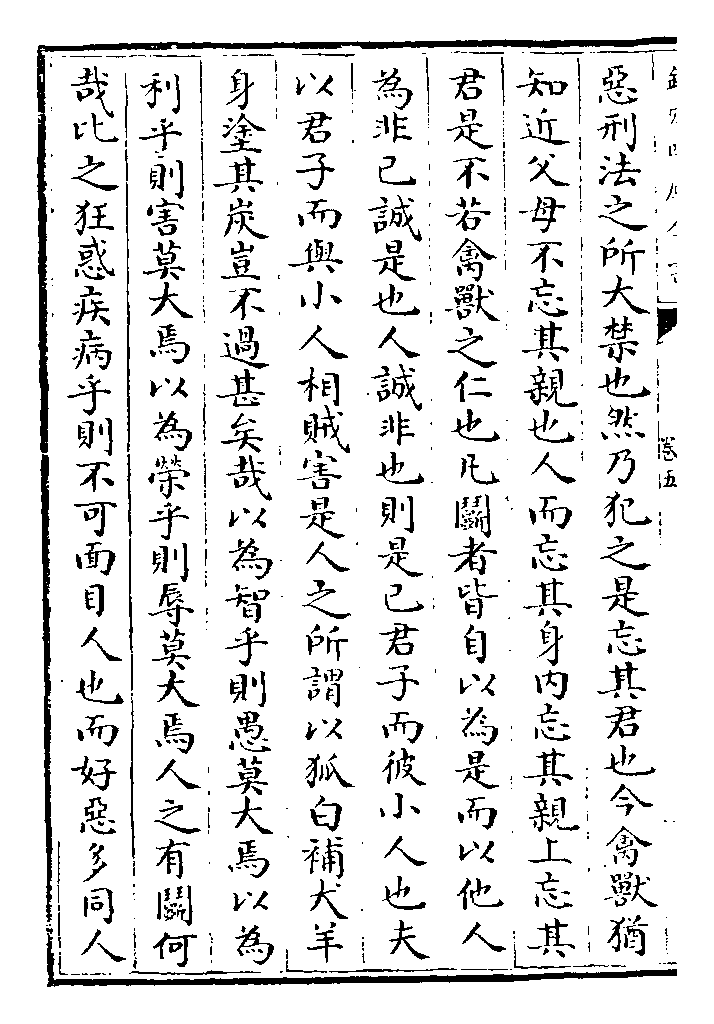 惡刑法之所大禁也然乃犯之是忘其君也今禽獸猶
知近父母不忘其親也人而忘其身内忘其親上忘其
君是不若禽獸之仁也凡鬭者皆自以為是而以他人
為非已誠是也人誠非也則是已君子而彼小人也夫
以君子而與小人相賊害是人之所謂以狐白補犬羊
身塗其炭豈不過甚矣哉以為智乎則愚莫大焉以為
利乎則害莫大焉以為榮乎則辱莫大焉人之有鬭何
哉比之狂惑疾病乎則不可面目人也而好惡多同人
卷五